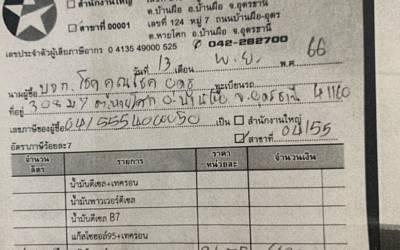 สำนักงานใหญ่
ต.บ้านผือ อ.บ้านผือ จ.อุดรธานี
สาขาที่ 00001
เลขที่ 124 หมู่ 7 ถนนบ้านผือ-อุดร
ต.หายโศก อ.บ้านผือ จ.อุดรธานี
เลขประจำตัวผู้เสียภาษีอากร 0 4135 49000 525
042-282700
วันที่ 13 เดือน พ.ย. พ.ศ 66
นามผู้ซื้อ บจก. โชคคูณโชค อุดร ทะเบียนรถ
ที่อยู่ 30 ม.7 ต.หายโศก อ.บ้านผือ จ.อุดรธานี 41160
เลขภาษีของผู้ซื้อ เป็น สำนักงานใหญ่
สาขาที่ 04155
อัตราภาษีร้อยละ 7
จำนวนลิตร รายการ ราคาหน่วยละ จำนวนเงิน
น้ำมันดีเซล+เทครอน
น้ำมันพาวเวอร์ดีเซล
น้ำมันดีเซล B7
แก๊สโซฮอล์95+เทครอน